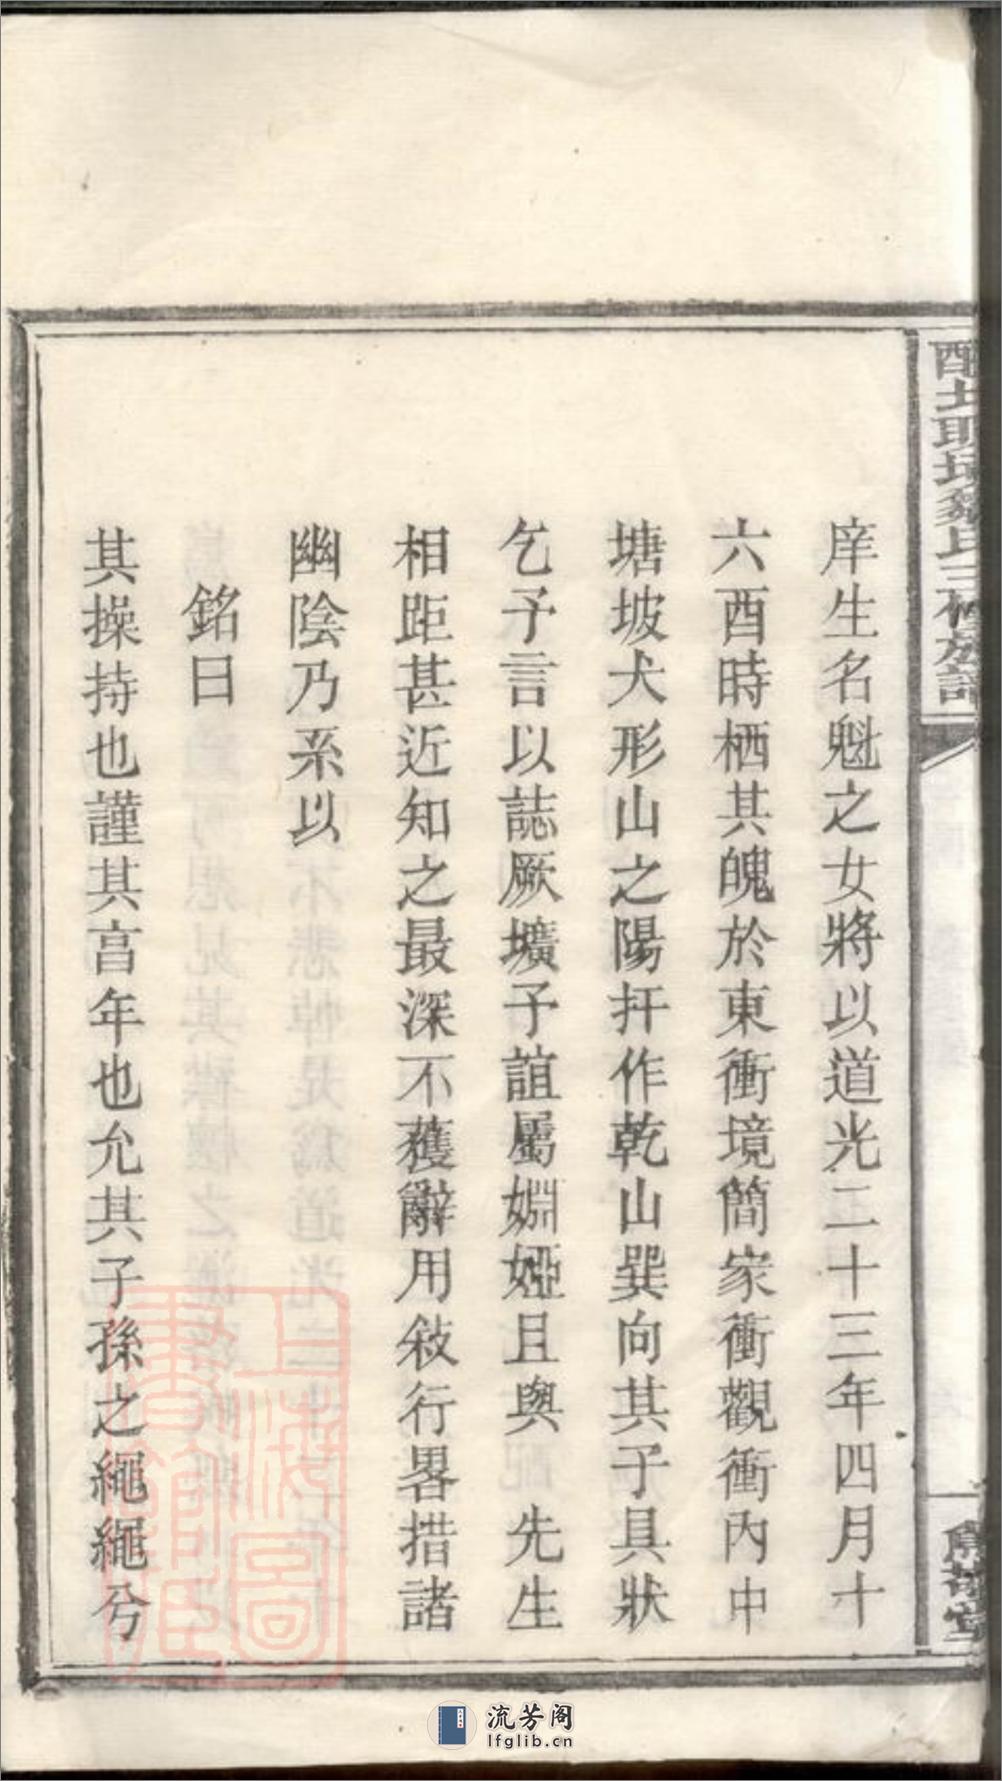 庠生名魁之女將以道光二十三年四月十
六酉時栖其魄於東衝境簡家衝觀衝內中
塘坡犬形山之陽扞作乾山巽向其子具狀
乞予言以誌厥壙予誼屬婣婭且與　先生
相距甚近知之最深不獲辭用敍行畧措諸
幽陰乃系以
銘曰
其操持也謹其高年也允其子孫之繩繩兮
氏三修族譜
堂
上海圖書館藏
流芳阁
lfglib.cn